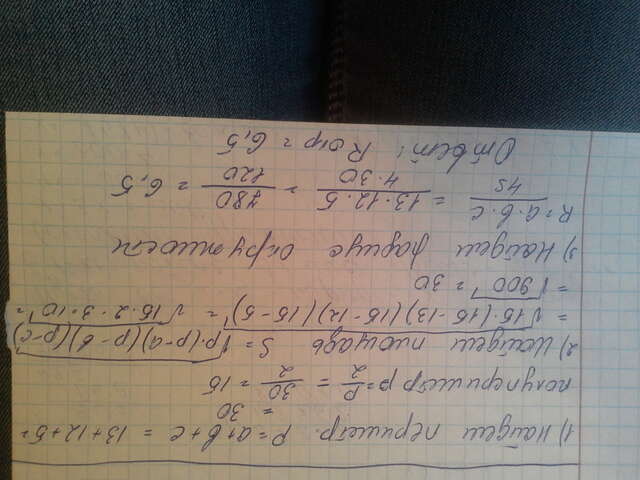 1) Найдем периметр. P=a+в+c = 13+12+5=
= 30
полупериметр p=P/2 = 30/2 = 15
2) Найдем площадь S=√p·(p-a)(p-в)(p-c)
= √15·(15-13)(15-12)(15-5) = √15·2·3·10 =
= √900 = 30
3) Найдем радиус окружности
R = a·в·c/4S = 13·12·5/4·30 = 780/120 = 6,5
Ответ: Rокр = 6,5